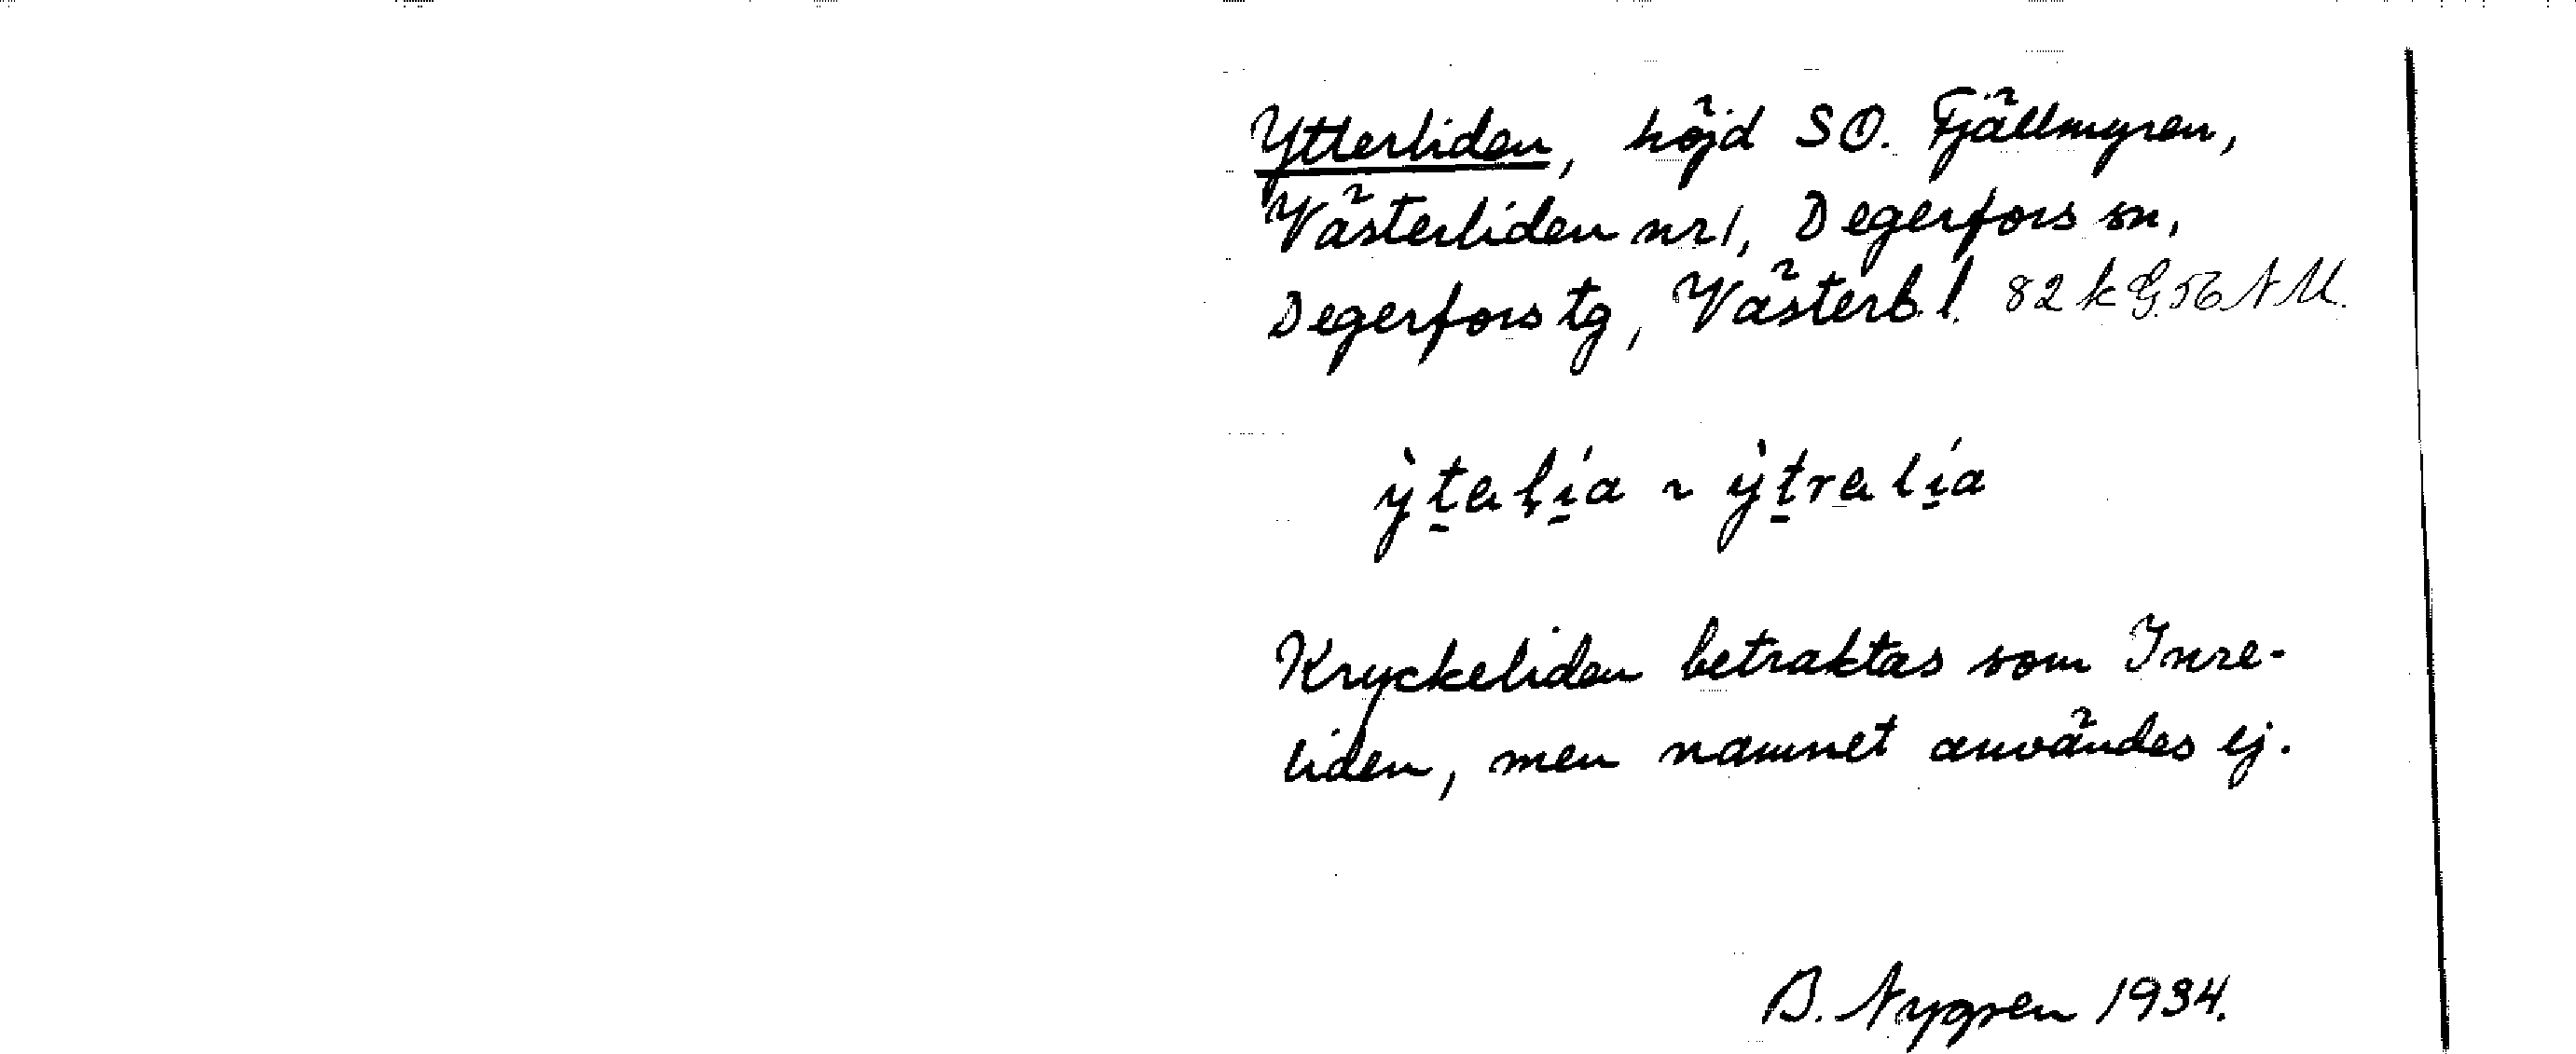 Ytterliden, höjd SO. Fjällmyren,
Västerliden nr 1, Degerfors sn,
Degerfors tg, Västerb. l. 82 k G. 56 N M.
ỳt̠aḷí̠a ~ ỳt̠ralí̠a
Kryckeliden betraktas som Inre-
liden, men namnet användes ej.
B. Nygren 1934.